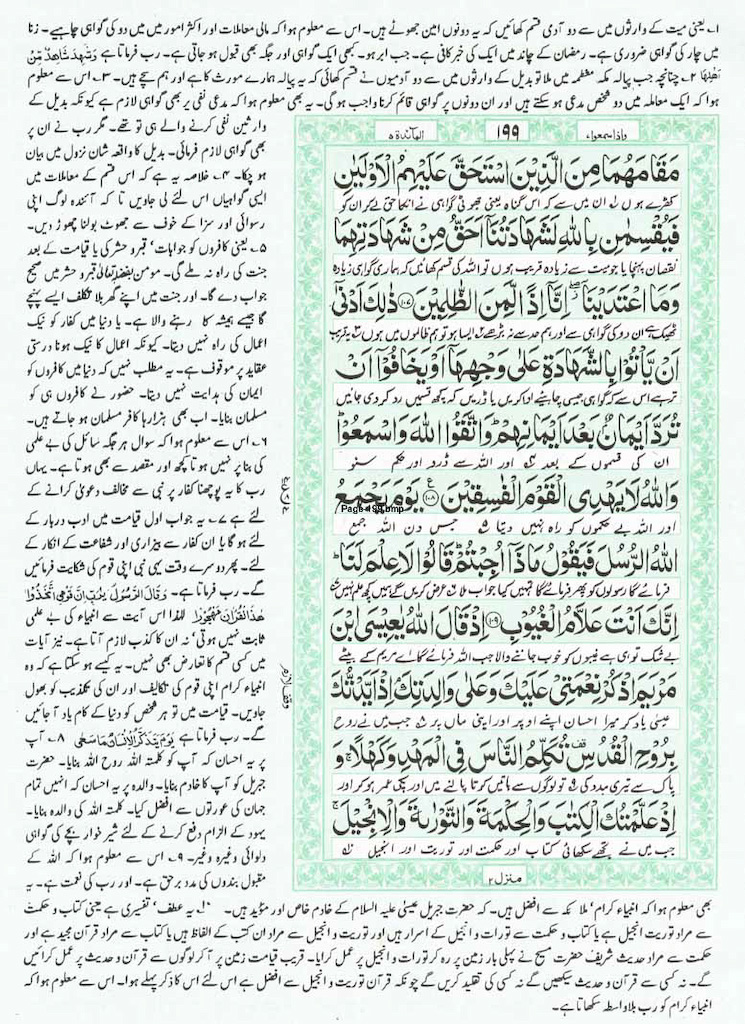 ۱؎ یعنی میت کے وارثوں میں سے دو آدمی قسم کھائیں کہ یہ دونوں امین جھوٹے ہیں۔ اس سے معلوم ہوا کہ مالی معاملات اور اکثر امور میں میں دو کی گواہی چاہیے۔ زنا
میں چار کی گواہی ضروری ہے۔ رمضان کے چاند میں ایک کی خبر کافی ہے۔ جب ابر ہو۔ کبھی ایک گواہی اور جگہ بھی قبول ہو جاتی ہے۔ رب فرماتا ہے وَشَهِدَ شَاهِدٌ مِّنْ
اَهْلِهَا ۲؎ چنانچہ جب پیالہ مکہ معظمہ میں ملا تو بدیل کے وارثوں میں سے دو آدمیوں نے قسم کھائی کہ یہ پیالہ ہمارے مورث کا ہے اور ہم سچے ہیں۔ ۳؎ اس سے معلوم
ہوا کہ ایک معاملہ میں دو شخص مدعی ہو سکتے ہیں اور ان دونوں پر گواہی قائم کرنا واجب ہو گی۔ یہ بھی معلوم ہوا کہ مدعی نفی پر بھی گواہی لازم ہے کیونکہ بدیل کے
وارثین نفی کرنے والے ہی تو تھے۔ مگر رب نے ان پر
بھی گواہی لازم فرمائی۔ بدیل کا واقعہ شان نزول میں بیان
ہو چکا۔ ۴؎ خلاصہ یہ ہے کہ اس قسم کے معاملات میں
ایسی گواہیاں اس لئے لی جاویں تا کہ آئندہ لوگ اپنی
رسوائی اور سزا کے خوف سے جھوٹ بولنا چھوڑ دیں۔
۵؎ یعنی کافروں کو جوابات، قبر و حشر کی یا قیامت کے بعد
جنت کی راہ نہ ملے گی۔ مومن بفضلہٖ تعالیٰ قبر و حشر میں صحیح
جواب دے گا۔ اور جنت میں اپنے گھر بلا تکلف ایسے پہنچے
گا جیسے ہمیشہ کا رہنے والا ہے۔ یا دنیا میں کفار کو نیک
اعمال کی راہ نہیں دیتا۔ کیونکہ اعمال کا نیک ہونا درستی
عقاید پر موقوف ہے۔ یہ مطلب نہیں کہ دنیا میں کافروں کو
ایمان کی ہدایت نہیں دیتا۔ حضور نے کافروں ہی کو
مسلمان بنایا۔ اب بھی ہزارہا کافر مسلمان ہو جاتے ہیں۔
۶؎ اس سے معلوم ہوا کہ سوال ہر جگہ سائل کی بے علمی
کی بنا پر نہیں ہوتا کچھ اور مقصد سے بھی ہوتا ہے۔ یہاں
رب کا یہ پوچھنا کفار پر نبی سے مخالف دعویٰ کرانے کے
لئے ہے ۷؎ یہ جواب اول قیامت میں ادب دربار کے
لئے ہو گا یا ان کفار سے بیزاری اور شفاعت کے انکار کے
لئے۔ پھر دوسرے وقت یہی نبی اپنی قوم کی شکایت فرمائیں
گے۔ رب فرماتا ہے۔ وَقَالَ الرَّسُوْلُ يٰرَبِّ اِنَّ قَوْمِي اتَّخَذُوْا
هٰذَا الْقُرْاٰنَ مَهْجُوْرًا لہٰذا اس آیت سے انبیاء کی بے علمی
ثابت نہیں ہوتی، نہ ان کا کذب لازم آتا ہے۔ نیز آیات
میں کسی قسم کا تعارض بھی نہیں۔ یہ کیسے ہو سکتا ہے کہ وہ
انبیاء کرام اپنی قوم کی تکالیف اور ان کی تکذیب کو بھول
جاویں۔ قیامت میں تو ہر شخص کو دنیا کے کام یاد آ جائیں
گے۔ رب فرماتا ہے يَوْمَ يَتَذَكَّرُ الْاِنْسَانُ مَا سَعٰى ۸؎ آپ
پر یہ احسان کہ آپ کو کلمتہ اللہ روح اللہ بنایا۔ حضرت
جبریل کو آپ کا خادم بنایا۔ والدہ پر یہ احسان کہ انہیں تمام
جہان کی عورتوں سے افضل کیا۔ کلمتہ اللہ کی والدہ بنایا۔
یہود کے الزام دفع کرنے کے لئے شیر خوار بچے کی گواہی
دلوائی وغیرہ وغیرہ۔ ۹؎ اس سے معلوم ہوا کہ اللہ کے
مقبول بندوں کی مدد برحق ہے۔ اور رب کی نعمت ہے۔ یہ
واذا سمعوا ۷ ۱۹۹ المآئدۃ ۵
مَقَامَهُمَا مِنَ الَّذِيْنَ اسْتَحَقَّ عَلَيْهِمُ الْاَوْلَيٰنِ
کھڑے ہوں ان میں سے کہ اس گناہ یعنی جھوٹی گواہی نے انکا حق لے کر ان کو
فَيُقْسِمٰنِ بِاللّٰهِ لَشَهَادَتُنَآ اَحَقُّ مِنْ شَهَادَتِهِمَا
نقصان پہنچایا جو میت سے زیادہ قریب ہوں تو اللہ کی قسم کھائیں کہ ہماری گواہی زیادہ
وَمَا اعْتَدَيْنَآ ۖ اِنَّآ اِذًا لَّمِنَ الظّٰلِمِيْنَ ﴿۱۰۷﴾ ذٰلِكَ اَدْنٰٓى
ٹھیک ہے ان دو کی گواہی سے اور ہم حد سے نہ بڑھے ایسا ہو تو ہم ظالموں میں ہوں یہ قریب
اَنْ يَّاْتُوْا بِالشَّهَادَةِ عَلٰى وَجْهِهَآ اَوْ يَخَافُوْٓا اَنْ
تر ہے اس سے کہ گواہی جیسی چاہیئے ادا کریں یا ڈریں کہ کچھ قسمیں رد کر دی جائیں
تُرَدَّ اَيْمَانٌۢ بَعْدَ اَيْمَانِهِمْ ۭ وَاتَّقُوا اللّٰهَ وَاسْمَعُوْا ۭ
ان کی قسموں کے بعد اور اللہ سے ڈرو اور حکم سنو
وَاللّٰهُ لَا يَهْدِى الْقَوْمَ الْفٰسِقِيْنَ ﴿۱۰۸﴾ يَوْمَ يَجْمَعُ
Page-199.bmp
اور اللہ بے حکموں کو راہ نہیں دیتا جس دن اللہ جمع
اللّٰهُ الرُّسُلَ فَيَقُوْلُ مَاذَآ اُجِبْتُمْ ۭ قَالُوْا لَا عِلْمَ لَنَا ۭ
فرمائے گا رسولوں کو پھر فرمائے گا تمہیں کیا جواب ملا عرض کریں گے ہمیں کچھ علم نہیں
اِنَّكَ اَنْتَ عَلَّامُ الْغُيُوْبِ ﴿۱۰۹﴾ اِذْ قَالَ اللّٰهُ يٰعِيْسَى ابْنَ
بے شک تو ہی ہے غیبوں کو خوب جاننے والا جب اللہ فرمائے گا اے مریم کے بیٹے
مَرْيَمَ اذْكُرْ نِعْمَتِيْ عَلَيْكَ وَعَلٰى وَالِدَتِكَ ۘ اِذْ اَيَّدْتُّكَ
عیسیٰ یاد کر میرا احسان اپنے اوپر اور اپنی ماں پر جب میں نے روح
بِرُوْحِ الْقُدُسِ ۣ تُكَلِّمُ النَّاسَ فِى الْمَهْدِ وَكَهْلًا ۚ وَ
پاک سے تیری مدد کی تو لوگوں سے باتیں کرتا پالنے میں اور پکی عمر ہو کر اور
اِذْ عَلَّمْتُكَ الْكِتٰبَ وَالْحِكْمَةَ وَالتَّوْرٰىةَ وَالْاِنْجِيْلَ ۚ
جب میں نے تجھے سکھائی کتاب اور حکمت اور توریت اور انجیل
منزل ۲
وقف لازم
بھی معلوم ہوا کہ انبیاء کرام، ملائکہ سے افضل ہیں۔ کہ حضرت جبریل عیسیٰ علیہ السلام کے خادم خاص اور مؤید ہیں۔ ۱۰؎ یہ عطف، تفسیری ہے یعنی کتاب و حکمت
سے مراد توریت انجیل ہے یا کتاب و حکمت سے تورات و انجیل کے اسرار ہیں اور توریت و انجیل سے مراد ان کتب کے الفاظ ہیں یا کتاب سے مراد قرآن مجید ہے اور
حکمت سے مراد حدیث شریف حضرت مسیح نے پہلی بار زمین پر رہ کر تورات و انجیل پر عمل کرایا۔ قریب قیامت زمین پر آ کر لوگوں سے قرآن و حدیث پر عمل کرائیں
گے۔ نہ کسی سے قرآن و حدیث سیکھیں گے نہ کسی کی تقلید کریں گے چونکہ قرآن توریت و انجیل سے افضل ہے اس لئے اس کا ذکر پہلے ہوا۔ اس سے معلوم ہوا کہ
انبیاء کرام کو رب بلاواسطہ سکھاتا ہے۔